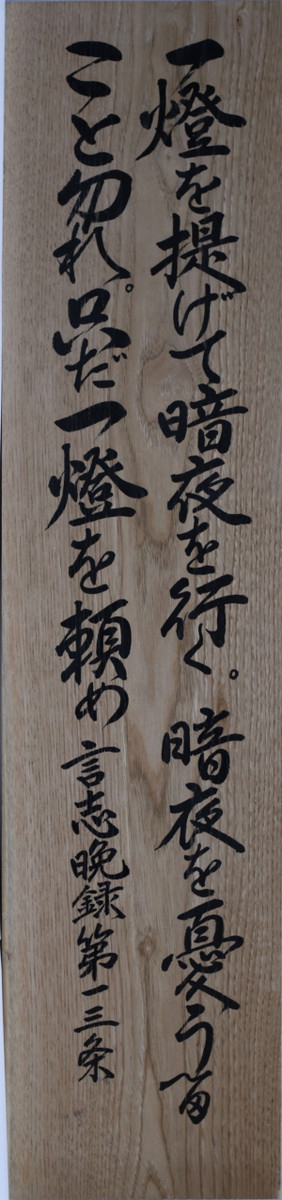 一燈を提げて暗夜を行く。暗夜を憂う
こと勿れ。只だ一燈を頼め 言志晩録第一三条